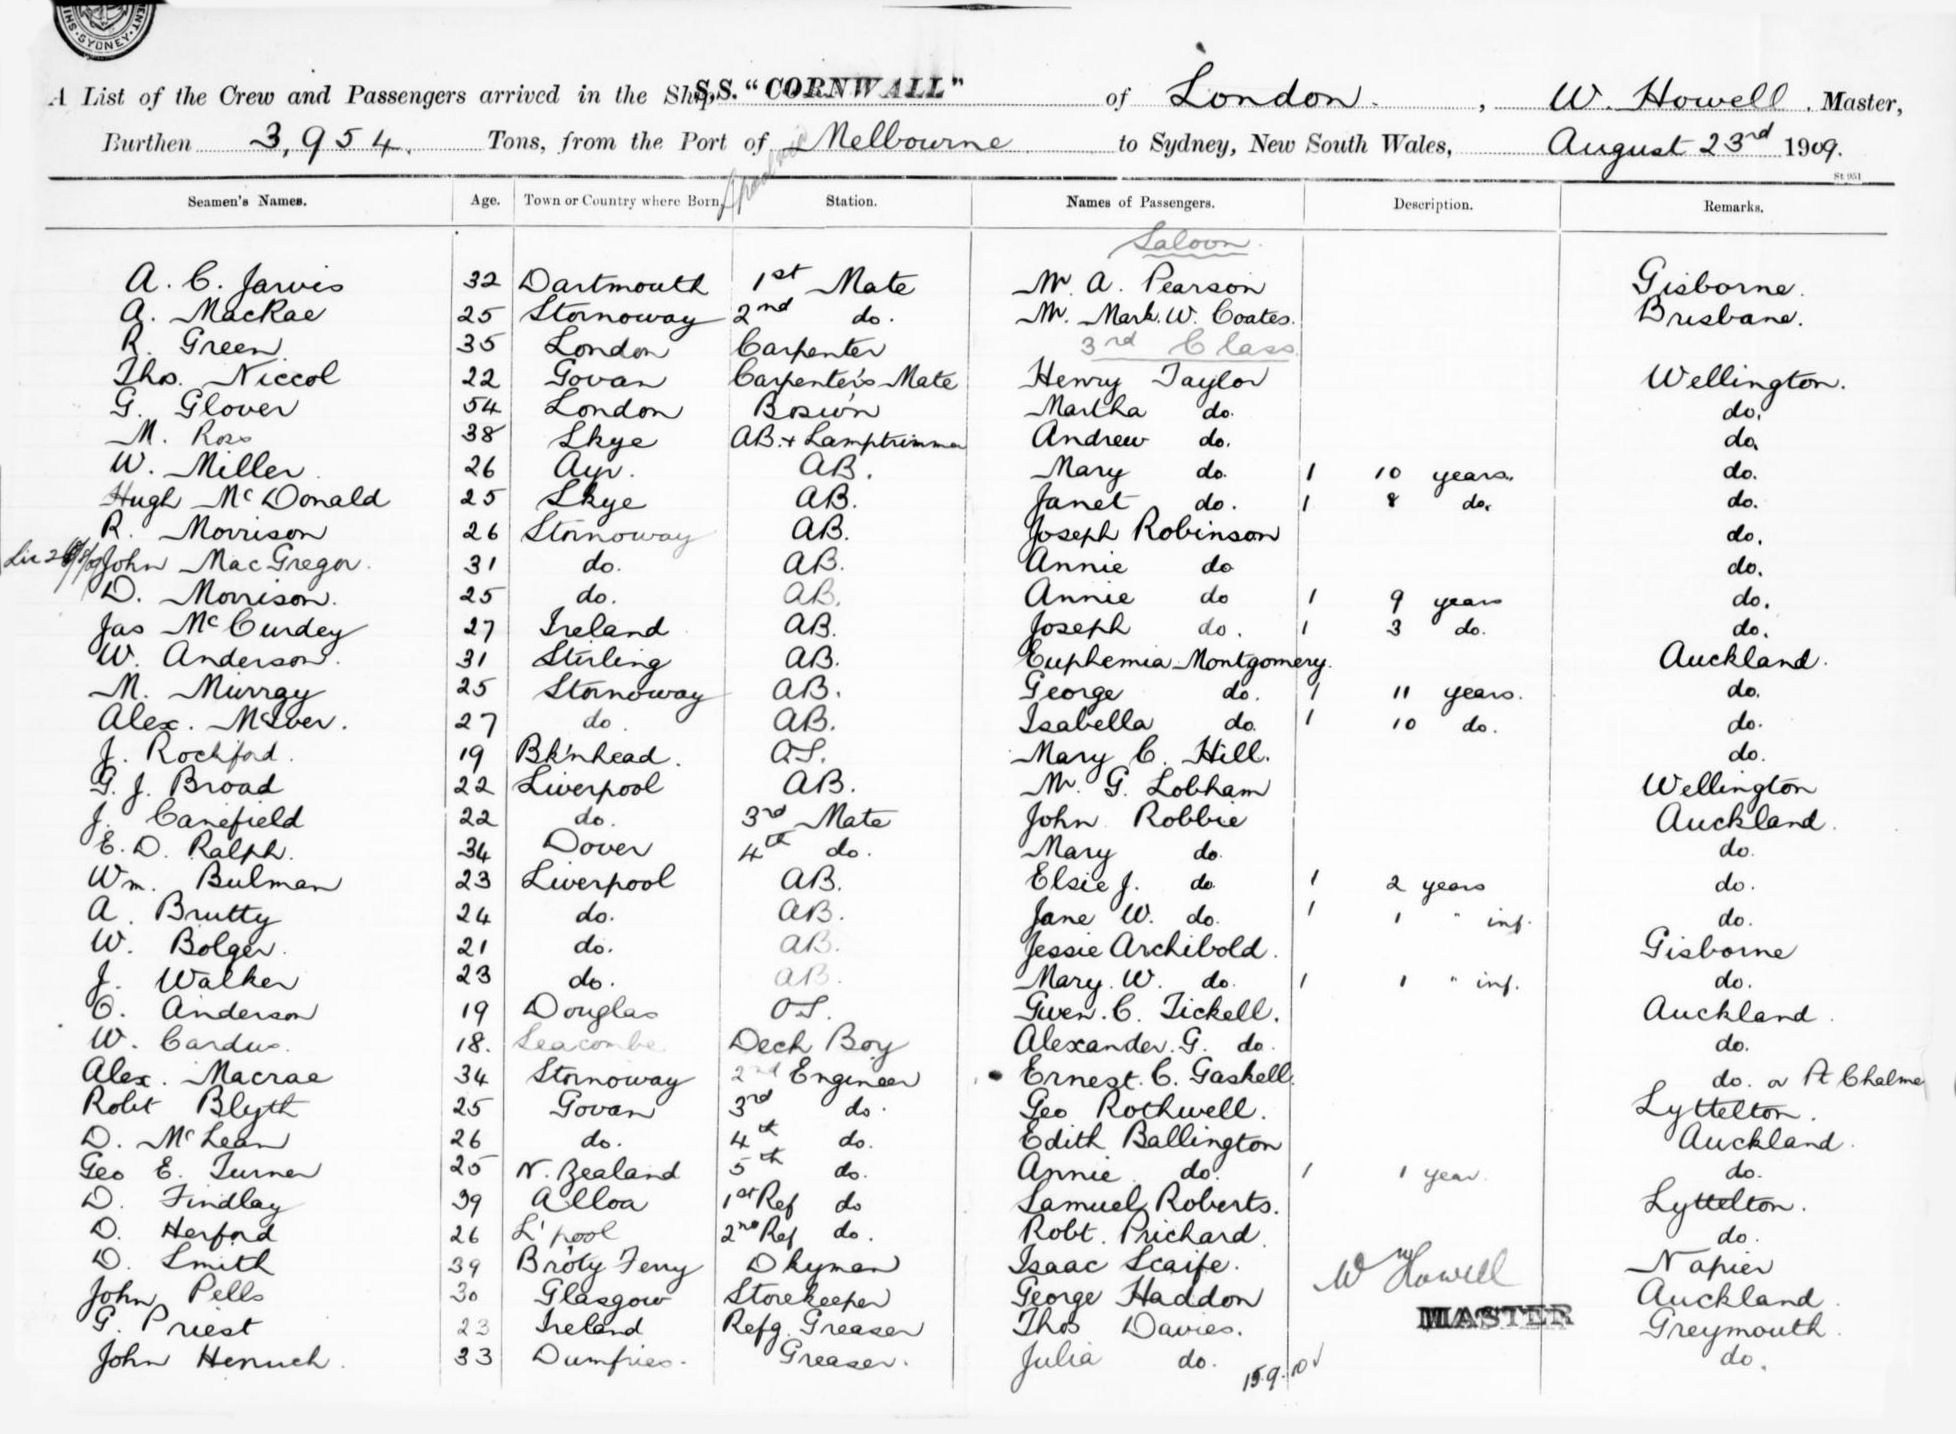 SYDNEY
A List of the Crew and Passengers arrived in the Ship, S.S. "CORNWALL" of London. , W. Howell. Master,
Burthen 3,954. Tons, from the Port of Melbourne to Sydney, New South Wales, August 23rd 1909.
St 951
Seamen's Names. Age. Town or Country where Born, Station. Names of Passengers. Description. Remarks.
Saloon.
A. C. Jarvis 32 Dartmouth 1st Mate Mr. A. Pearson Gisborne.
A. MacRae 25 Stornoway 2nd do. Mr. Mark. W. Coates. Brisbane.
R. Green. 35 London Carpenter 3rd Class
Thos. Niccol 22 Govan Carpenter's Mate Henry Taylor Wellington.
G. Glover 54 London Bosw'n Martha do. do.
M. Ross 38 Skye AB. + Lamptrimmer Andrew do. do.
W. Miller 26 Ayr. AB. Mary do. 1 10 years. do.
Hugh McDonald 25 Skye AB. Janet do. 1 8 do. do.
R. Morrison 26 Stornoway AB. Joseph Robinson do.
John MacGregor. 31 do. AB. Annie do do.
D. Morrison. 25 do. AB. Annie do 1 9 years do.
Jas McCurdey 27 Ireland AB. Joseph do. 1 3 do. do.
W. Anderson. 31 Stirling AB. Euphemia Montgomery. Auckland.
M. Murray 25 Stornoway AB. George do. 1 11 years. do.
Alex. McIver. 27 do. AB. Isabella do. 1 10 do. do.
J. Rochford. 19 Bk'nhead. OS. Mary C. Hill. do.
G. J. Broad 22 Liverpool AB. Mr. G. Lobham Wellington
J. Canefield 22 do. 3rd Mate John Robbie Auckland.
E. D. Ralph. 34 Dover 4th do. Mary do. do.
Wm. Bulman 23 Liverpool AB. Elsie J. do 1 2 years do.
A. Brutty 24 do. AB. Jane W. do. 1 1 " inf. do.
W. Bolger. 21 do. AB. Jessie Archibold. Gisborne
J. Walker 23 do. AB. Mary. W. do. 1 1 " inf. do.
O. Anderson 19 Douglas OS. Gwen. C. Tickell. Auckland.
W. Cardus. 18. Seacombe Deck Boy Alexander. G. do. do.
Alex. Macrae 34 Stornoway 2nd Engineer Ernest. C. Gaskell. do. or Pt Chalme
Robt Blyth 25 Govan 3rd do. Geo Rothwell. Lyttelton.
D. McLean 26 do. 4th do. Edith Ballington Auckland.
Geo E. Turner 25 N. Zealand 5th do. Annie do. 1 1 year. do.
D. Findlay 39 Alloa 1st Ref do Samuel Roberts. Lyttelton.
D. Herford 26 L'pool 2nd Ref do. Robt. Prichard. do.
D. Smith 39 Bro'ty Ferry Dkyman Isaac Scaife. Wm Howell Napier
John Pells 30 Glasgow Storekeeper George Haddon MASTER Auckland.
G. Priest 23 Ireland Refg. Greaser Thos Davies. Greymouth.
John Henuch. 33 Dumfries. Greaser. Julia do. 15.9.10 do.